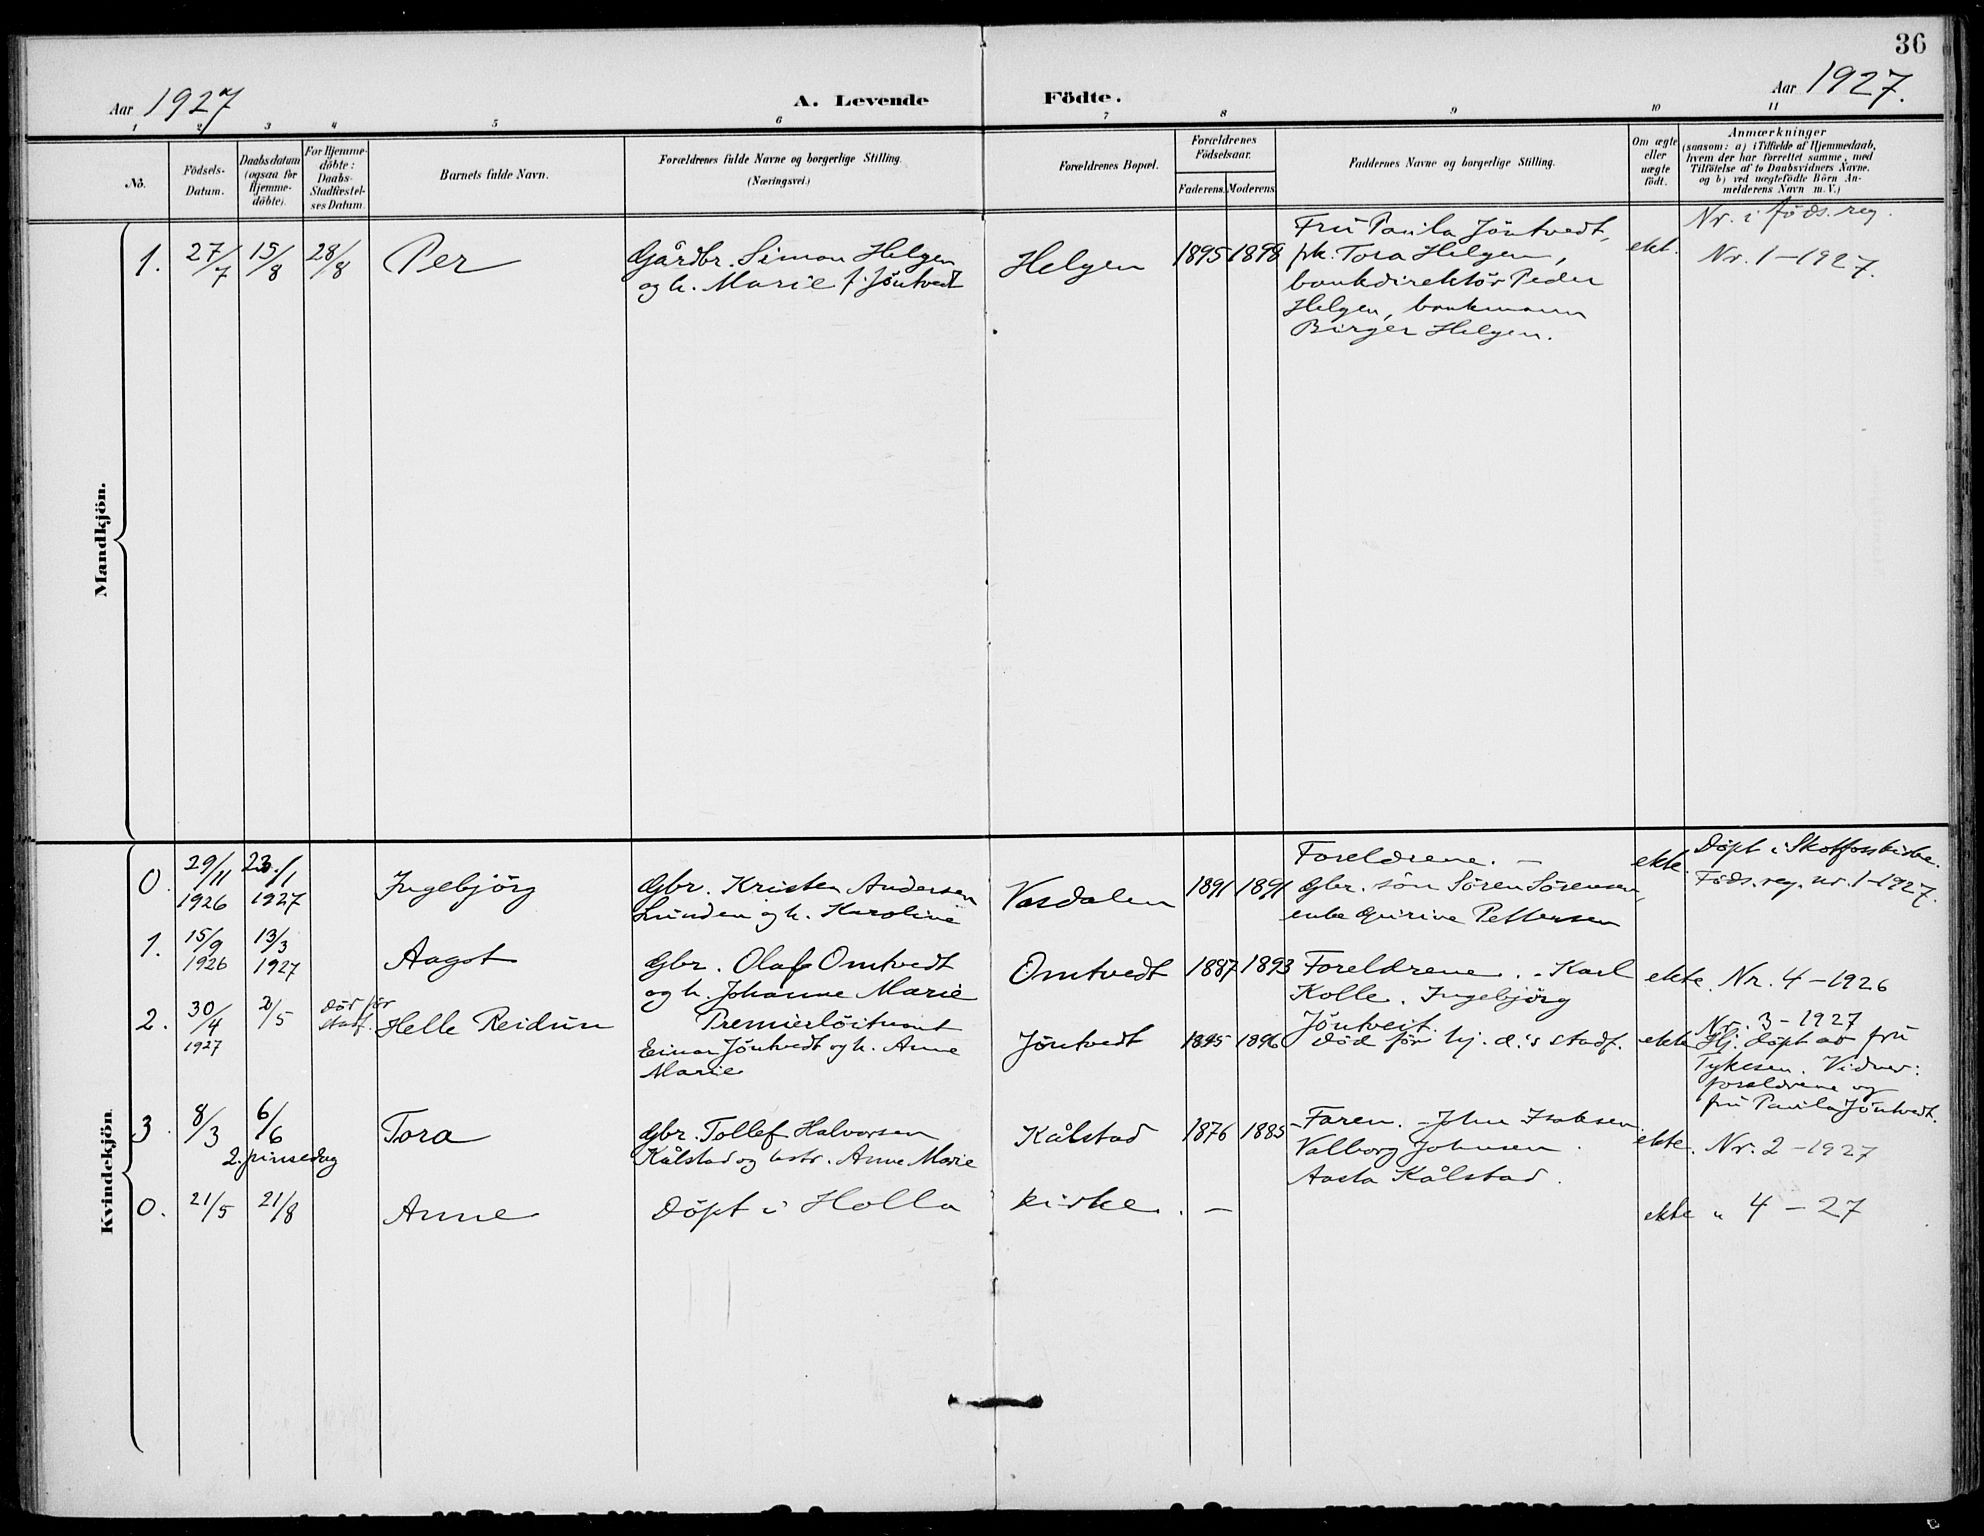 36
Aar 1927
A. Levende Födte.
Aar 1927.
1 2 3 4 5 6 7 8 9 10 11
No.
Födsels-
Datum.
Daabsdatum
(ogsaa for
Hjemme-
döbte).
For Hjemme-
döbte:
Daabs-
Stadfæstel-
ses Datum.
Barnets fulde Navn.
Forældrenes fulde Navne og borgerlige Stilling.
(Næringsvei.)
Forældrenes Bopæl.
Forældrenes
Födselsaar.
Faderens. Moderens.
Faddernes Navne og borgerlige Stilling.
Om ægte
eller
uægte
födt.
Anmærkninger
(saasom: a) i Tilfælde af Hjemmedaab,
hvem der har forrettet samme, med
Tilföielse af to Daabsvidners Navne.
og b) ved uægtefödte Börn An-
melderens Navn m. V.)
Mandkjön.
1. 27/7 15/8 28/8 Per
Gårdbr. Simon Helgen
og h. Marie f. Jöntvedt
Helgen 1895 1898
Fru Paula Jöntvedt,
frk. Tora Helgen,
bankdirektör Peder
Helgen, bankmann
Birger Helgen.
ekt.
Nr. i föds. reg.
Nr. 1 – 1927.
Kvindekjön.
0. 29/11 1926 23/1 1927 Ingebjörg
Gbr. Kristen Andersen
Lunden og h. Karoline
Vasdalen 1891 1891
Foreldrene. –
Gbr. sön Sören Sörensen,
enke Gurine Pettersen
ekte.
Döpt i Skotfoss kirke.
Föds. reg. nr. 1 – 1927.
1. 15/9 1926 13/3 1927 Aagot
Gbr. Olaf Omtvedt
og h. Johanne Marie
Omtvedt 1887 1893
Foreldrene. – Karl
Kolle. Ingebjörg
Jöntveit.
ekte. Nr. 4 – 1926
2. 30/4 1927 2/5 död för
stadf. Helle Reidun
Premierlöitnant
Einar Jöntvedt og h. Anne
Marie
Jöntvedt 1895 1896
Död för hj. d.'s stadf.
ekte
Nr. 3 – 1927
Hj. döpt av fru
Tykesen. Vidner:
foreldrene og
fru Paula Jöntvedt.
3. 8/3 6/6
2. pinsedag
Tora
Gbr. Tollef Halvorsen
Kålstad og hstr. Anne Marie
Kålstad 1876 1885
Faren. – John Isaksen
Valborg Johnsen.
Aasta Kålstad.
ekte. Nr. 2 – 1927
0. 21/5 21/8 Anne
Döpt i Holla kirke. –
ekte " 4 – 27